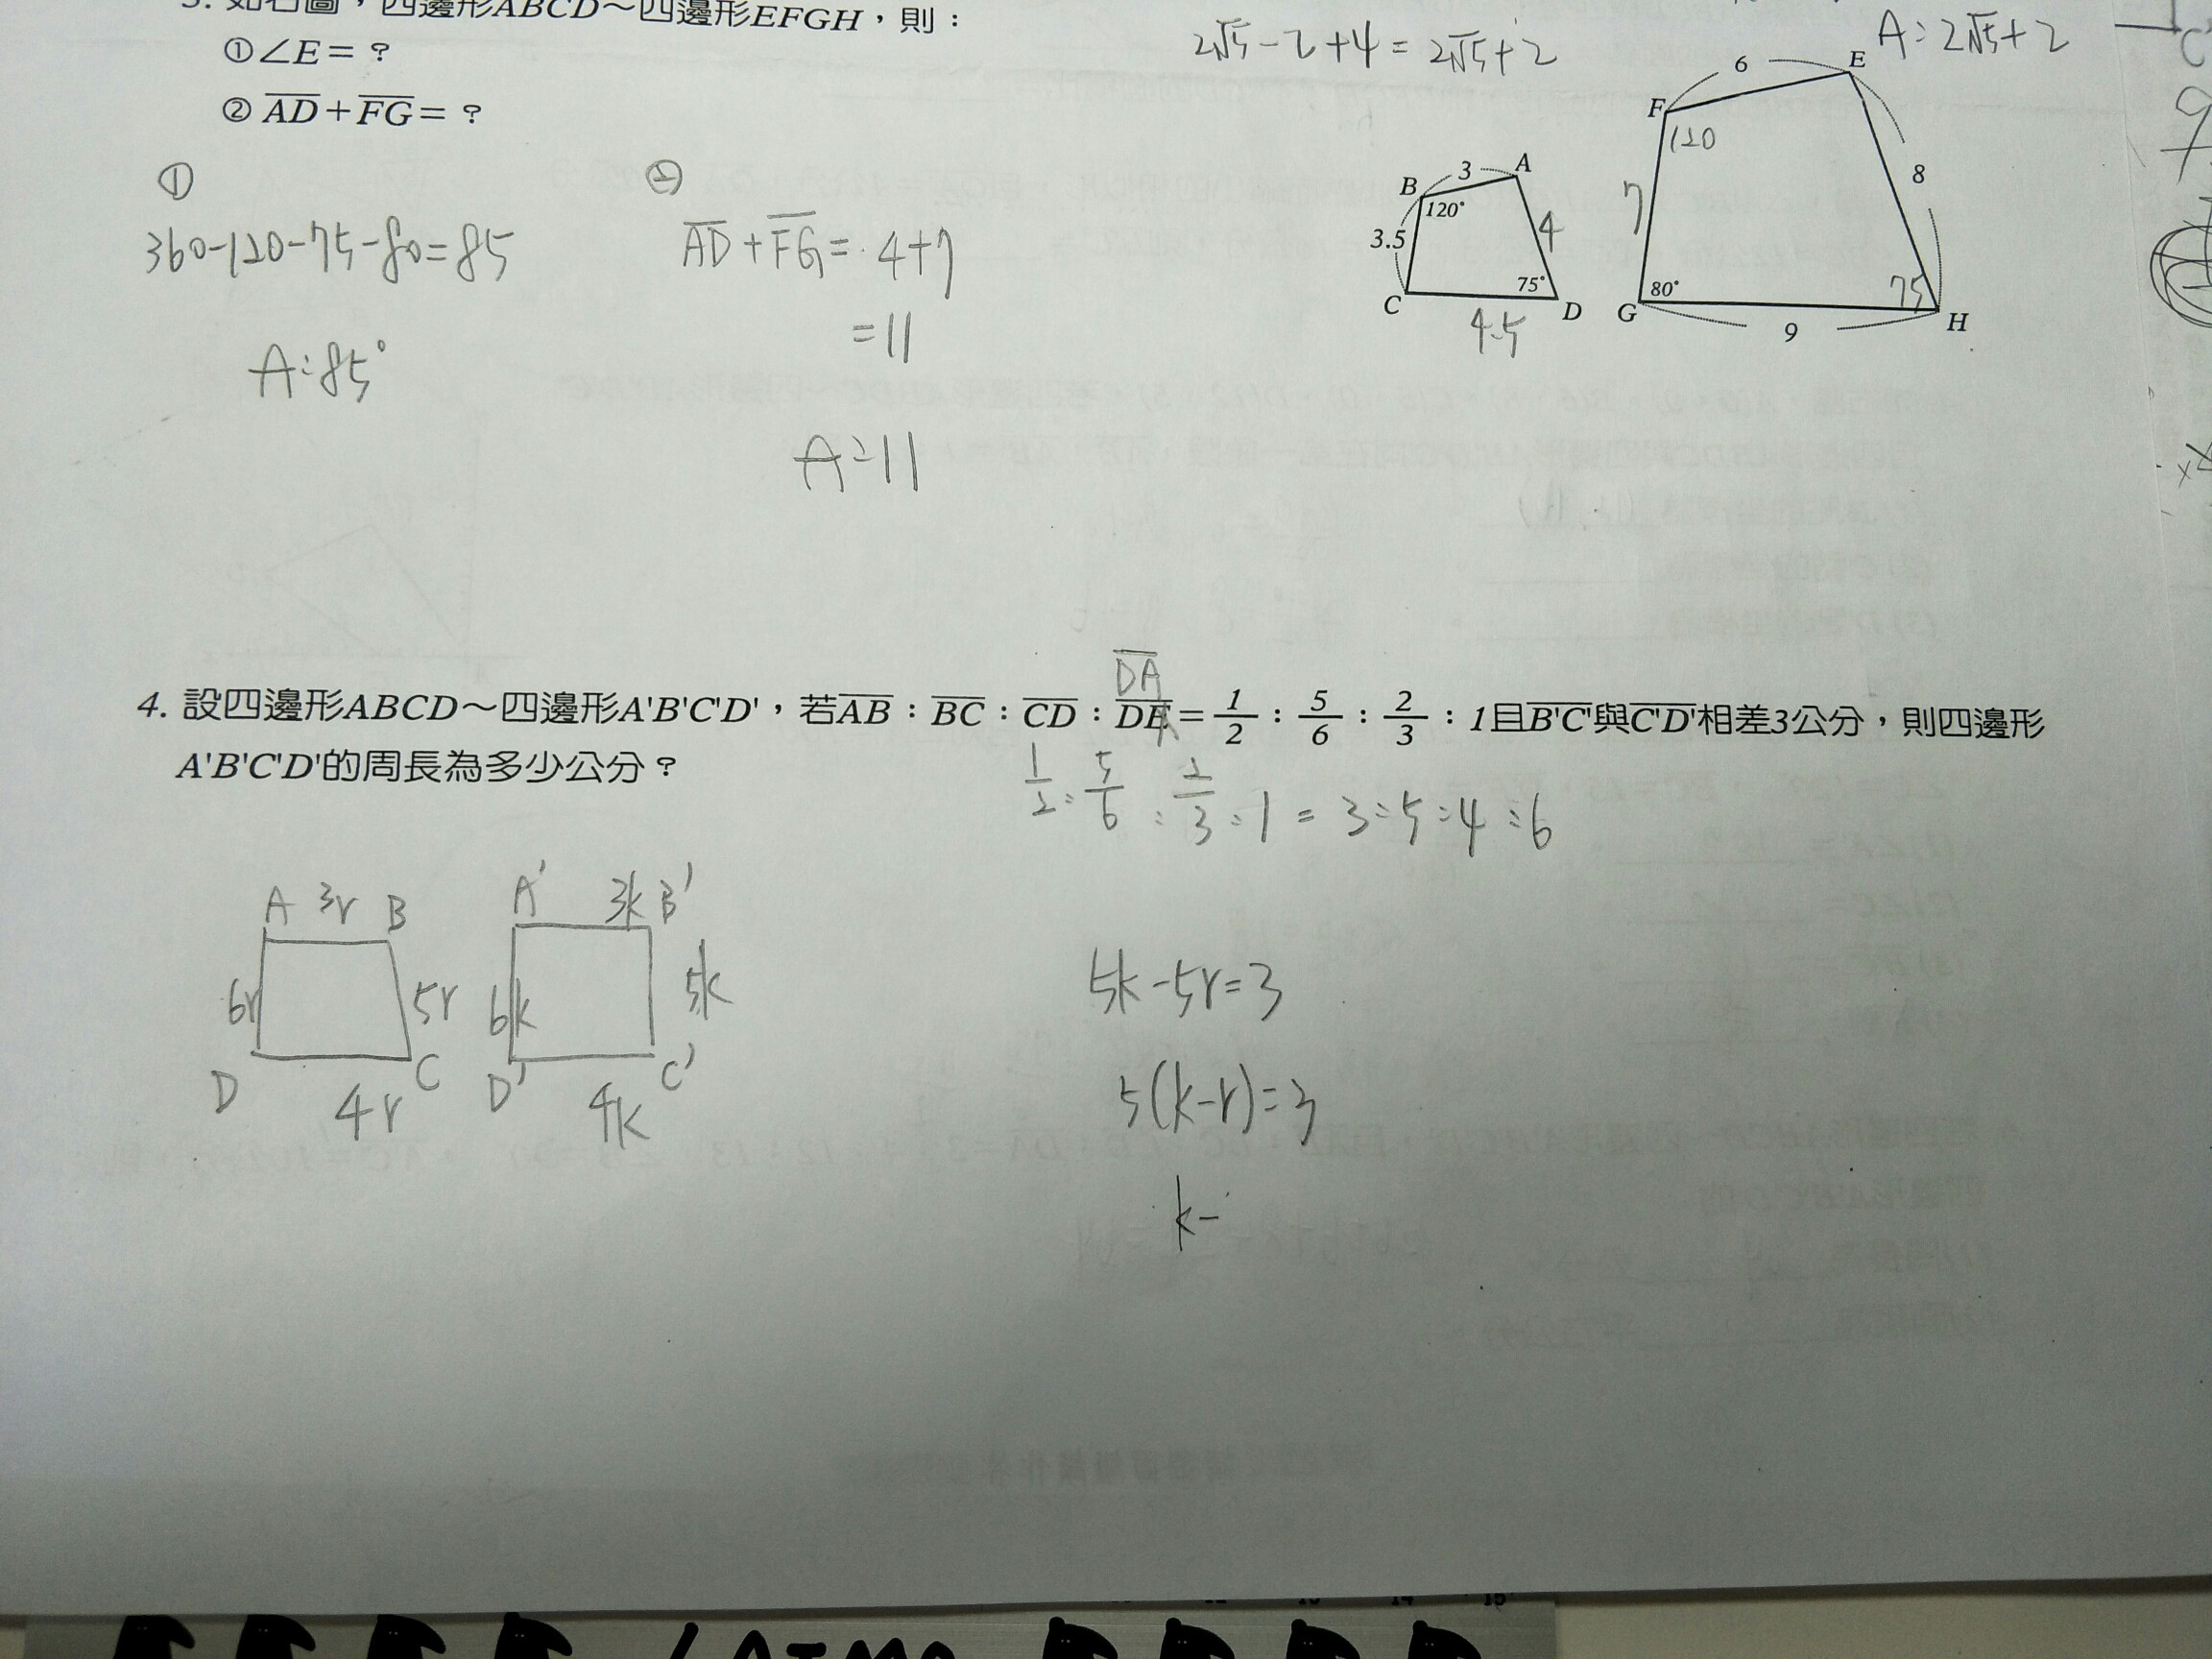 如右圖，四邊形ABCD～四邊形EFGH，則：
①∠E=？
② AD+FG=？
2√5-2+4=2√5+2
A:2√5+2
①
360-120-75-80=85
A:85°
②
AD+FG=4+7
=11
A:11
B 3 A
120°
3.5
4
75°
C 4.5 D
F 6 E
120
7
8
80°
75
G 9 H
DA
4. 設四邊形ABCD～四邊形A'B'C'D'，若AB：BC：CD：DE=1/2：5/6：2/3：1且B'C'與C'D'相差3公分，則四邊形
A'B'C'D'的周長為多少公分？
1/2:5/6:2/3:1=3:5:4:6
A 3r B
6r 5r
D 4r C
A' 3k B'
6k 5k
D' 4k C'
5k-5r=3
5(k-r)=3
k-